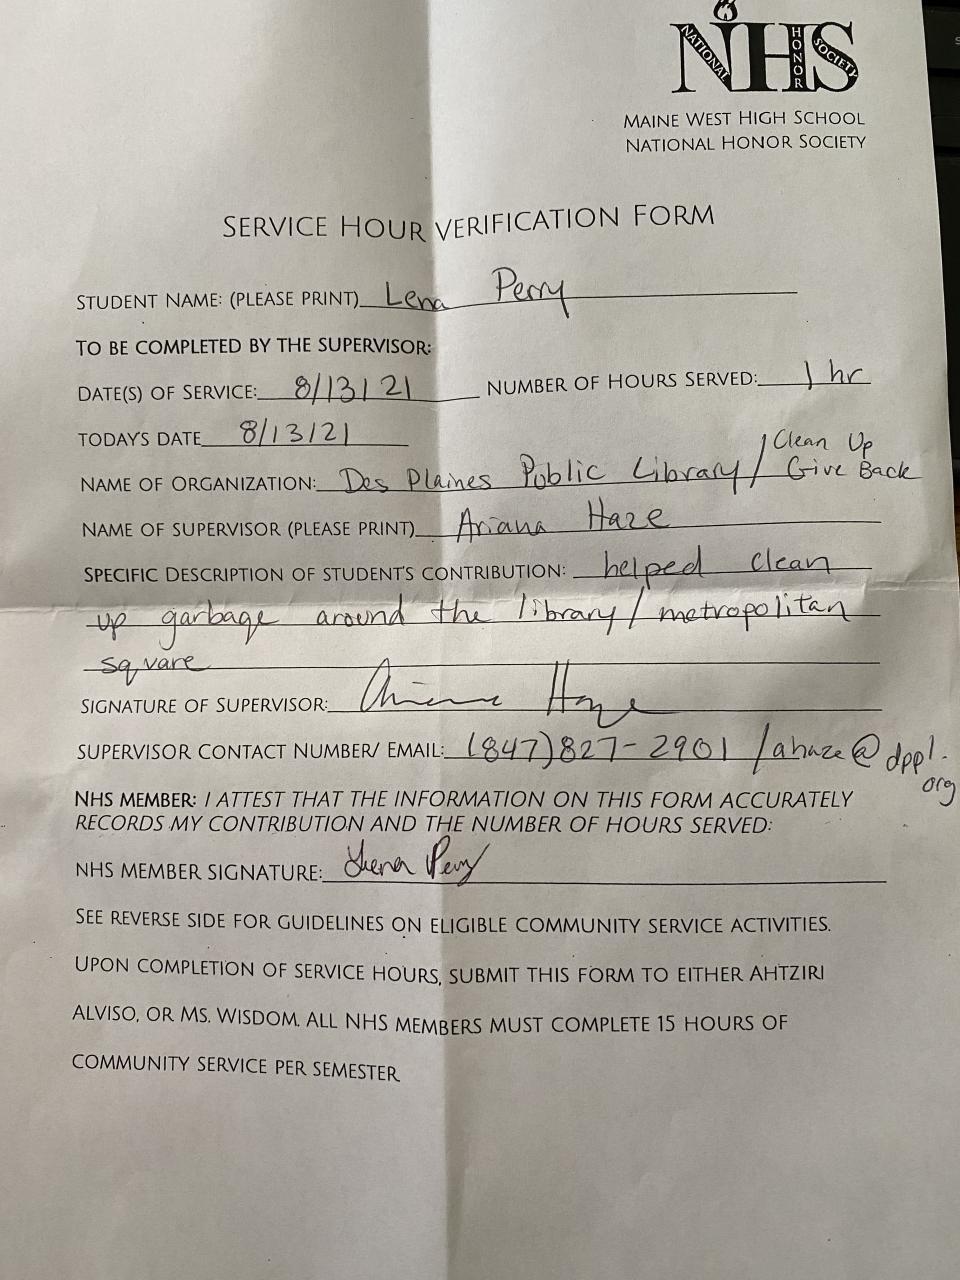 NHS
NATIONAL HONOR SOCIETY
MAINE WEST HIGH SCHOOL
NATIONAL HONOR SOCIETY
SERVICE HOUR VERIFICATION FORM
STUDENT NAME: (PLEASE PRINT) Lena Perry
TO BE COMPLETED BY THE SUPERVISOR:
DATE(S) OF SERVICE: 8/13/21 NUMBER OF HOURS SERVED: 1 hr
TODAY'S DATE 8/13/21
NAME OF ORGANIZATION: Des Plaines Public Library / Clean Up Give Back
NAME OF SUPERVISOR (PLEASE PRINT) Ariana Haze
SPECIFIC DESCRIPTION OF STUDENT'S CONTRIBUTION: helped clean
up garbage around the library / metropolitan
square
SIGNATURE OF SUPERVISOR: Ariana Haze
SUPERVISOR CONTACT NUMBER/ EMAIL: (847)827-2901 / ahaze@dppl.org
NHS MEMBER: I ATTEST THAT THE INFORMATION ON THIS FORM ACCURATELY
RECORDS MY CONTRIBUTION AND THE NUMBER OF HOURS SERVED:
NHS MEMBER SIGNATURE: Lena Perry
SEE REVERSE SIDE FOR GUIDELINES ON ELIGIBLE COMMUNITY SERVICE ACTIVITIES.
UPON COMPLETION OF SERVICE HOURS, SUBMIT THIS FORM TO EITHER AHTZIRI
ALVISO, OR MS. WISDOM. ALL NHS MEMBERS MUST COMPLETE 15 HOURS OF
COMMUNITY SERVICE PER SEMESTER